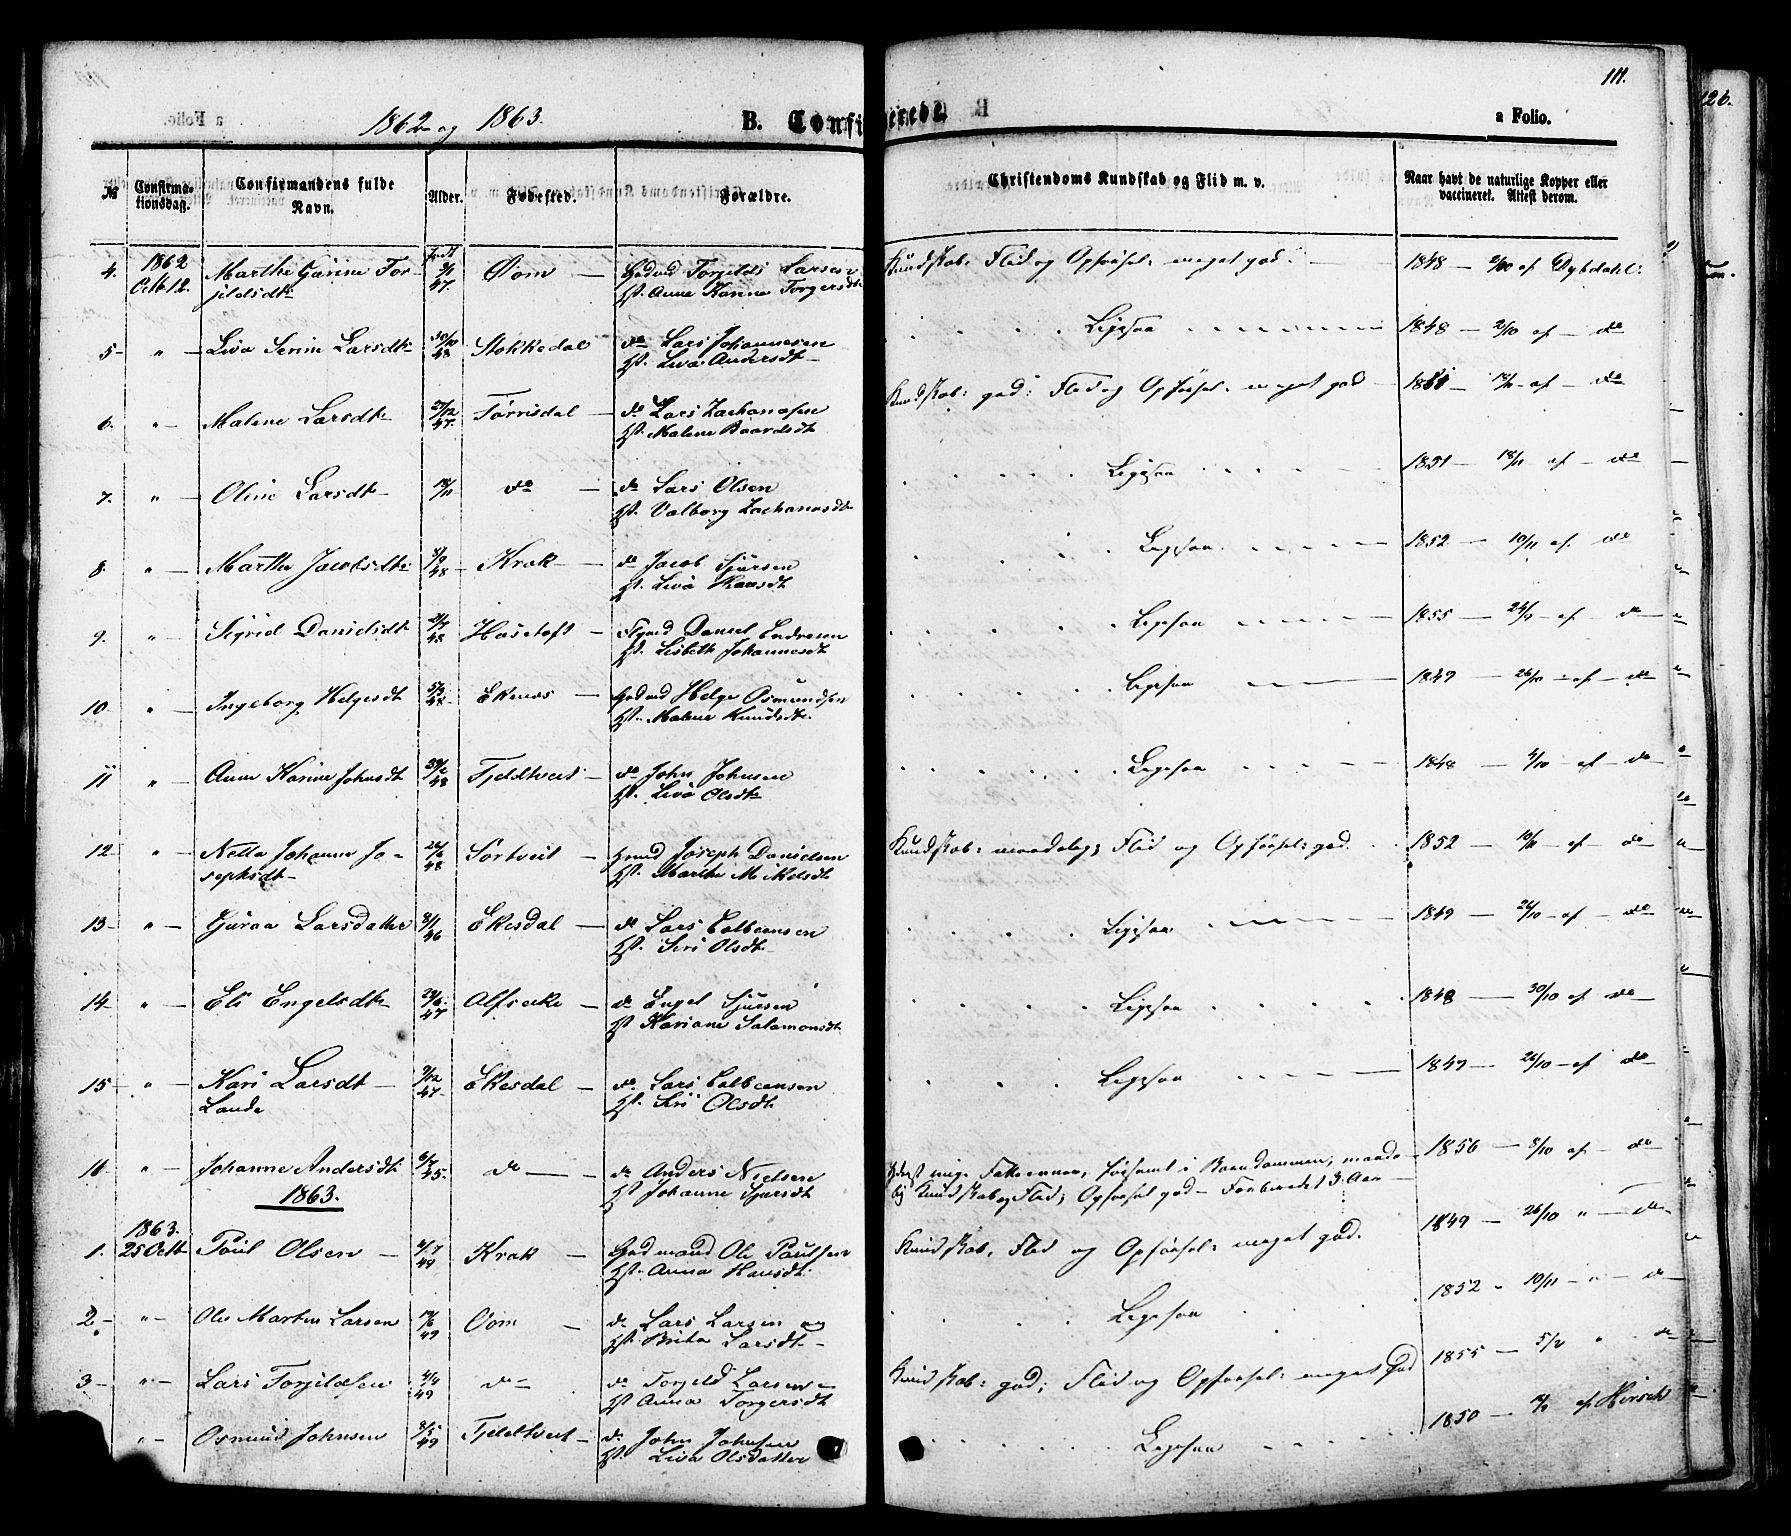 111.
1862 og 1863.
B. Confirmerede.
a Folio.
№ Confirmationsdag. Confirmandens fulde Navn. Alder. Fødested. Forældre. Christendoms Kundskab og Flid m. v. Naar havt de naturlige Kopper eller vaccineret. Attest derom.
4. 1862 Octb. 12. Marthe Gurine Torjildsdtr født 47. Oom — Gaardmd Torjilds Larsen Hst. Anne Karine Torgersdtr Kundskab, Flid og Opførsel: meget god. 1848 — 2/10 af Dybdahl.
5 — " — Liva Serine Larsdtr 30/10 48 Stokkedal do Lars Johannesen Hst. Liva Andersdt — Ligesaa 1848 — 2/10 af — do
6. " — Malene Larsdtr 27/12 47. Tørrisdal — do Lars Zachariasen Hst. Malene Baardsdt Kundskab: god; Flid og Opførsel: meget god — af — do
7. " — Oline Larsdtr do — do Lars Olsen Hst. Valborg Zachariasdt Ligesaa 1851 — 18/11 af — do
8. " — Marthe Jacobsdtr 8/2 48 — Krak — do Jacob Sjursen Hst. Liva Hansdt Ligesaa. 1852 — 10/11 af. do
9. " — Sigrid Danielsdtr 48 Hasetoft — Daniel Endresen Hst. Lisbeth Johannesdt Ligesaa 1855 — 24/7 af — do
10. " — Ingeborg Helgesdt 5/3 48 Ekenes — Gaardmd Helge Osmundsen Hst. Malene Knudsdtr. Ligesaa 1849 — 26/10 — af — do
11 " — Anne Karine Johnsdt 48 Fjeldtveit — do John Johnsen Hst. Liva Olsdtr Ligesaa 1848 — 4/10 — af — do
12 — " — Nella Johanne Josephsdt — 48 Sørtveit — Joseph Danielsen Hst. Marthe Mikelsdt Kundskab: maadelig; Flid og Opførsel: god. 1852 — 10/11 — af — do
13 — " — Guroa Larsdatter 8/1 46 Ekesdal — do Lars Hst. Siri Olsdt. Ligesaa 1849 — 26/10 — af — do
14 — " — Eli Engelsdtr 47 Alfseike — do Engel Sjursen Hst. Kariane Salamonsdt. Ligesaa 1848 — 30/10 af do
15 — " — Kari Larsdt — Lande 9/12 47 Ekesdal — do. Lars Hst. Siri Olsdt. Ligesaa 1849 — 26/10 — af do
16 — " — Johanne Andersdt. 6/7 45. do — do Anders Nielsen Hst Johanne Sjursdt i Barndommen, maadelig Kundskab og Flid; Opførsel god — Forberedet 3 Aar — 1856 — 8/10 af — do
1863.
1. 1863. 25 Octb. Poul Olsen — 4/7 49 Krak — Gaardmand Ole Poulsen Hst. Anna Hansdt. Kundskab, Flid og Opførsel: meget god. 1849 — 26/10 " — do
2. — " — Ole Martin Larsen 49 Oom — do Lars Larsen og Hst. Brita Larsdt — Ligesaa 1852 " 10/11 — " — do
3 — " — Lars Torjildsen 4/4 49 do — do Torjild Larsen — Hst Anna Torgersdt Kundskab: god; Flid og Opførsel: meget god 1855 — 5/2 " do
" — Osmund Johnsen 8/5 49 Fjeldtveit — do John Johnsen Hst. Liva Olsdatter Ligesaa 1850 — af Hirsch
126.